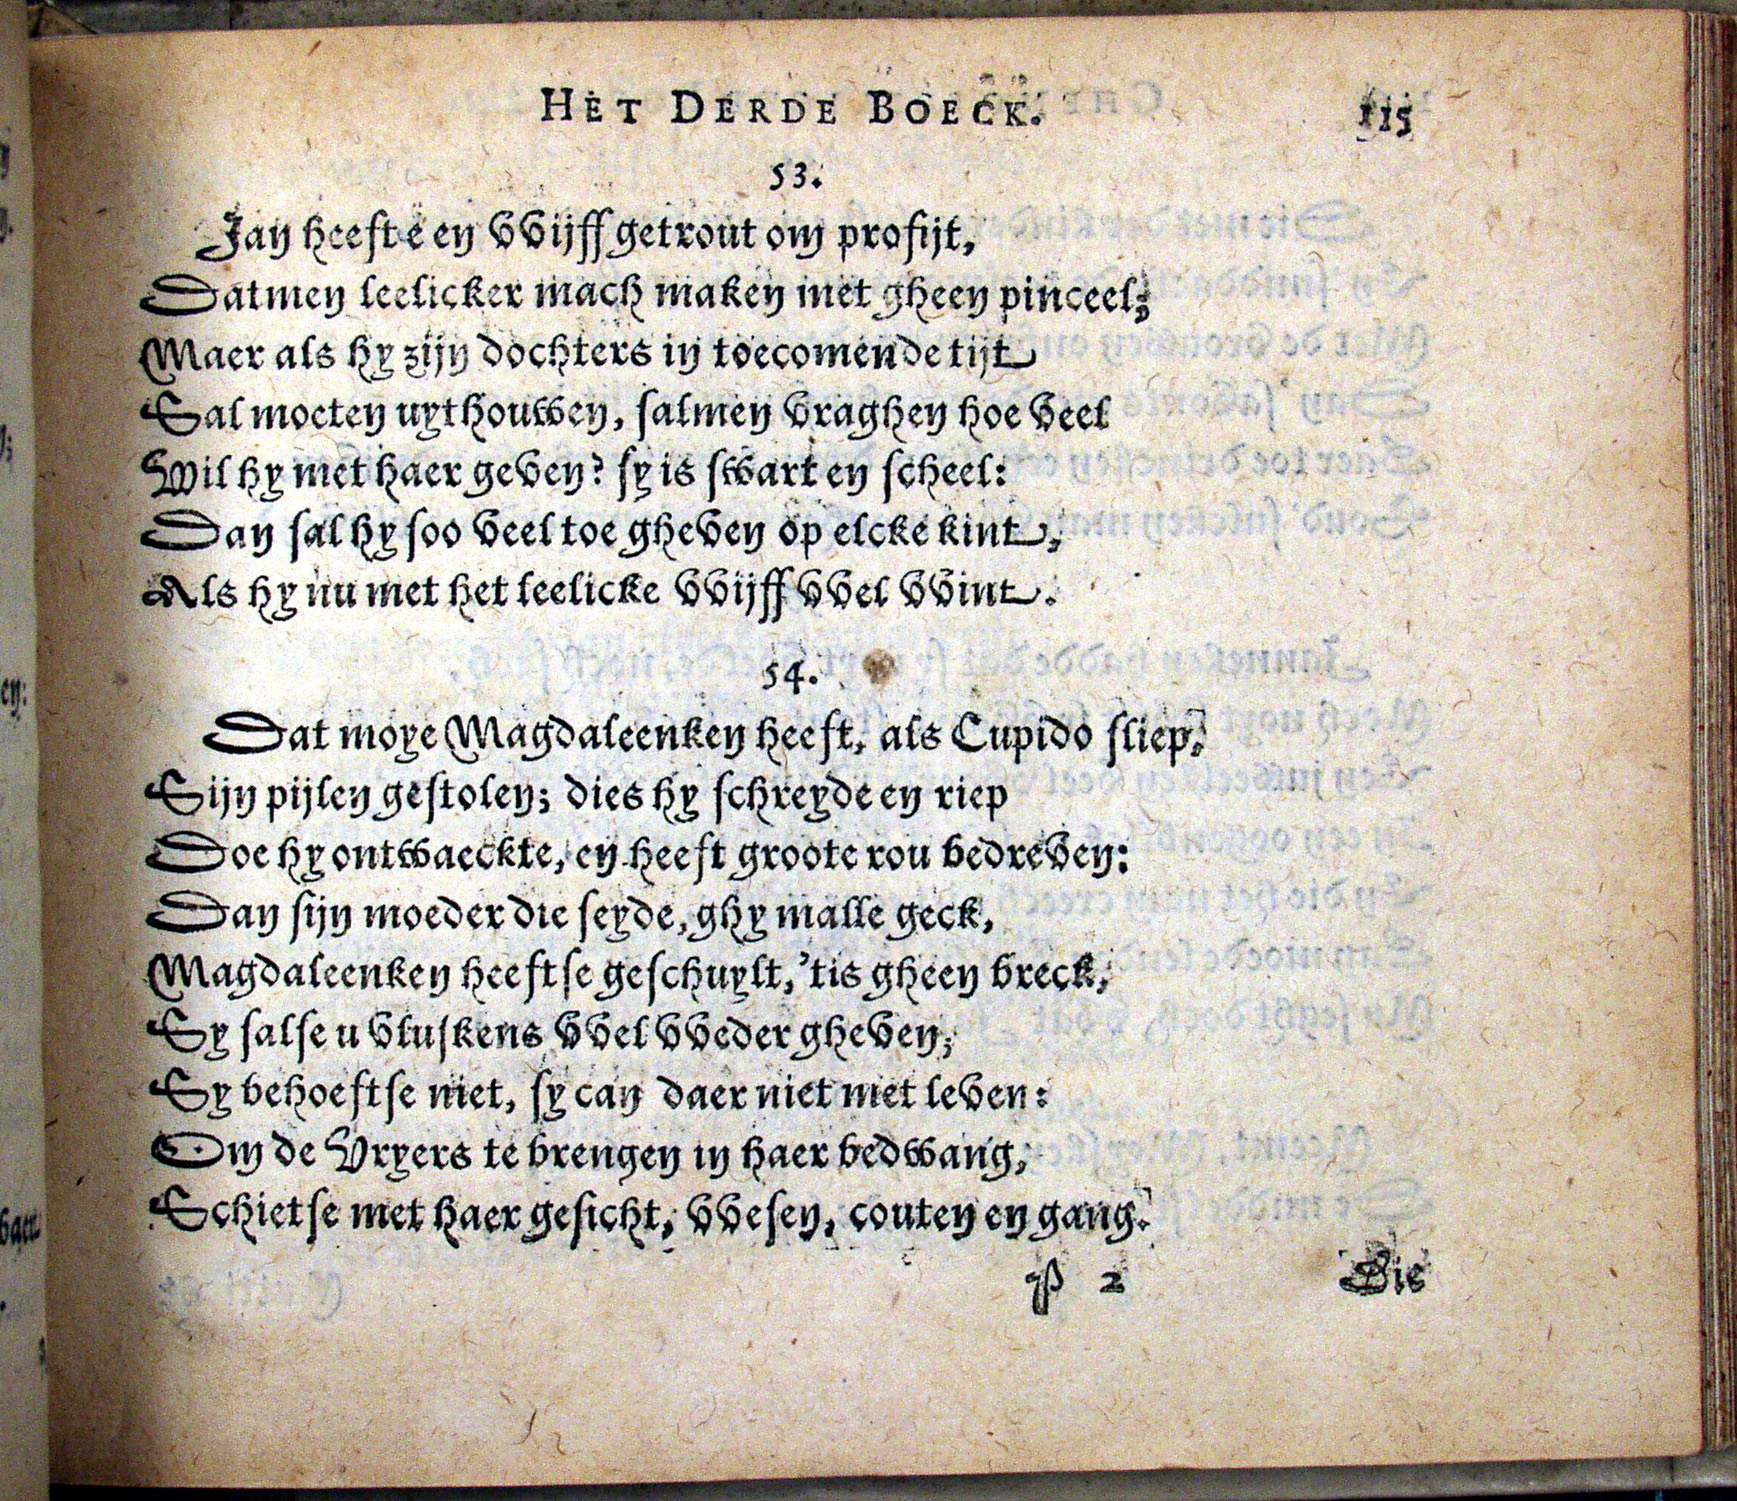 HET DERDE BOECK. 115
53.
Jan heeft een VVijff getrout om profijt,
Datmen leelicker mach maken met gheen pinceel;
Maer als hy zijn dochters in toecomende tijt
Sal moeten uythouwen, salmen vraghen hoe veel
Wil hy met haer geven? sy is swart en scheel:
Dan sal hy soo veel toe gheven op elcke kint,
Als hy nu met het leelicke VVijff VVel VVint.
54.
Dat moye Magdaleenken heeft, als Cupido sliep,
Sijn pijlen gestolen; dies hy schreyde en riep
Doe hy ontwaeckte, en heeft groote rou bedreven:
Dan sijn moeder die seyde, ghy malle geck,
Magdaleenken heeftse geschuylt, 'tis gheen breck,
Sy salse u vluskens VVel VVeder gheven,
Sy behoeftse niet, sy can daer niet met leven:
Om de Vryers te brengen in haer bedwang,
Schietse met haer gesicht, VVesen, couten en gang.
P 2 Die